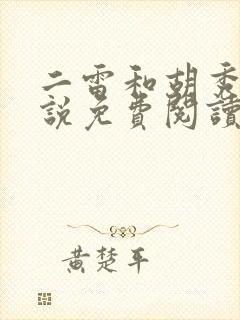 二雷和胡秀
說免費閱讀
黃楚平